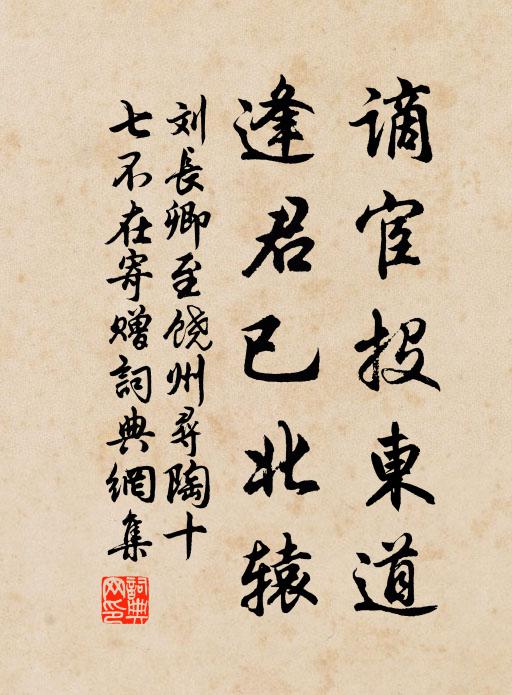 谪宦投東道
逢君已北辕
刘長卿至饶州尋陶十
七不在寄赠詞典網集
詞典网印